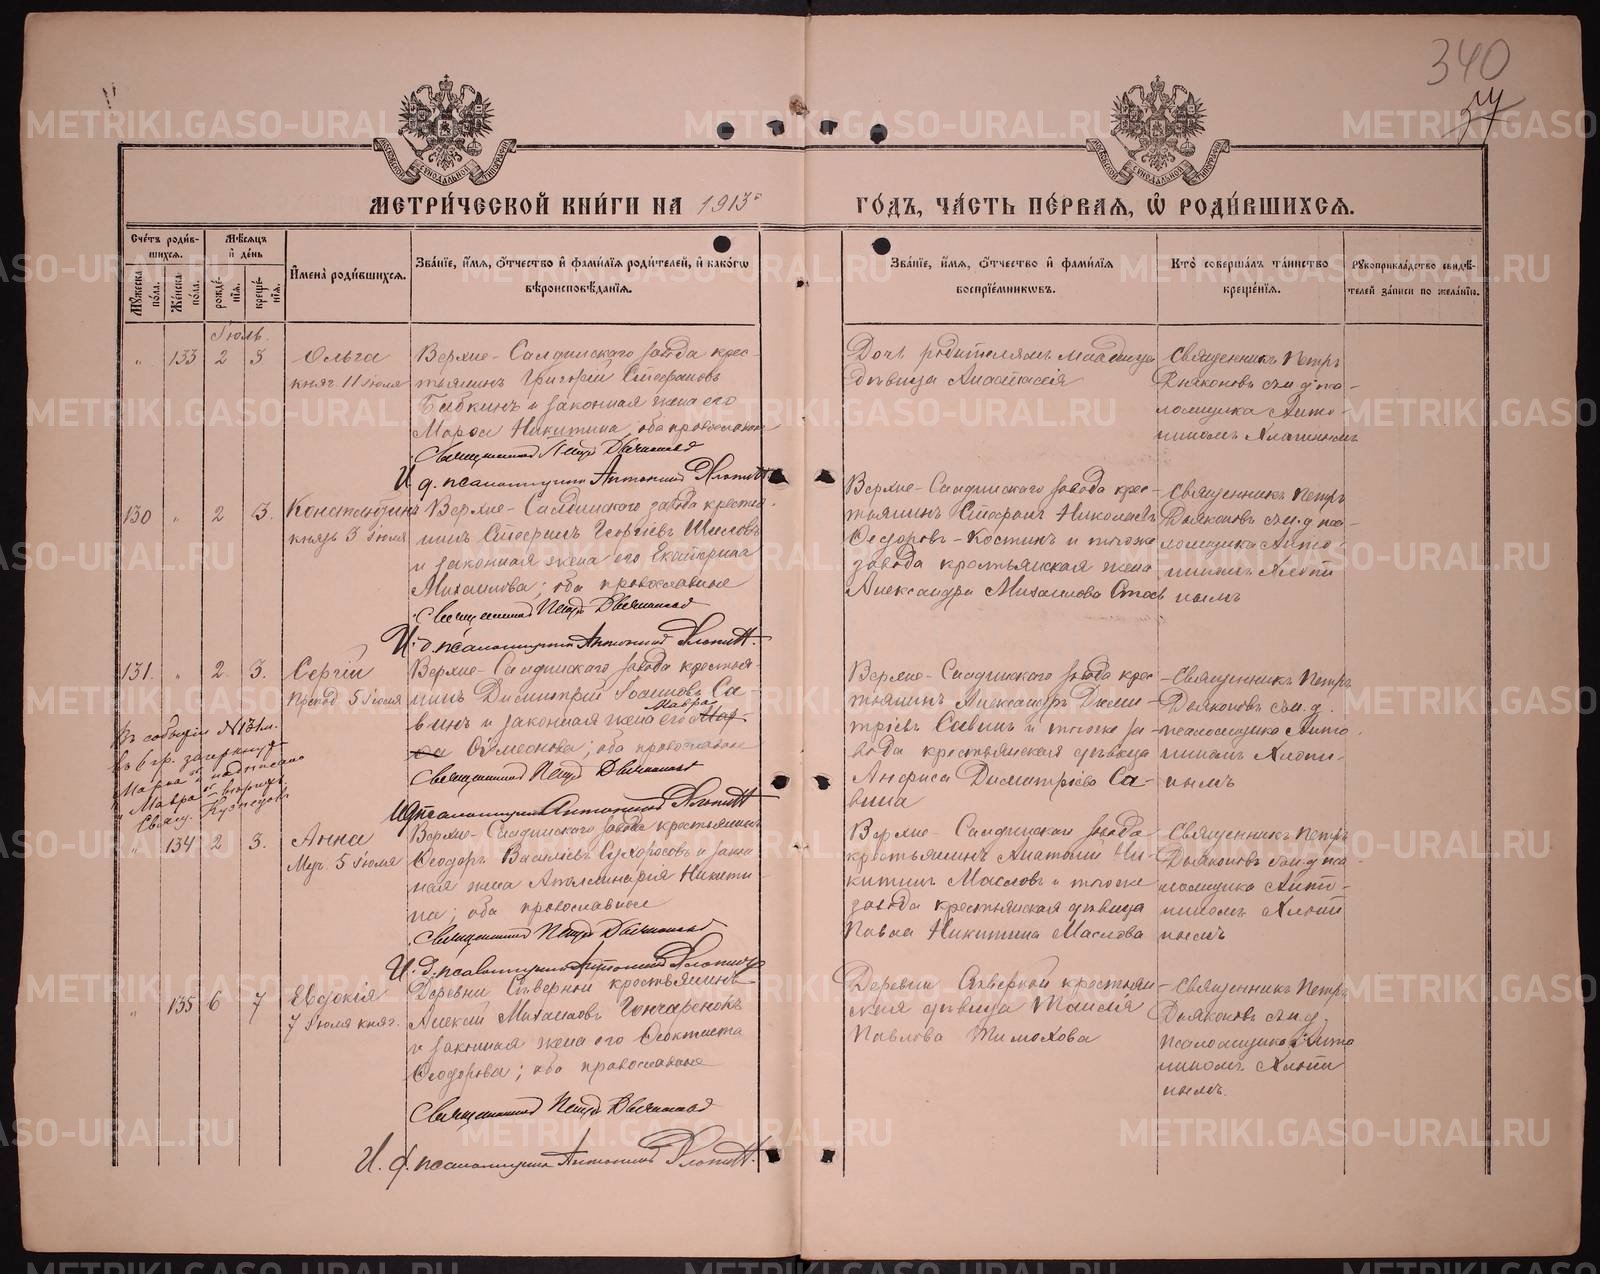 340
МЕТРИЧЕСКОЙ КНИГИ НА 1913
ГОДЪ, ЧАСТЬ ПЕРВАЯ, Ѡ РОДИВШИХСЯ.
Счетъ родив-
шихся.
Мужеска пола.
Женска пола.
Мѣсяцъ
и день
рожде-
нія.
креще-
нія.
Имена родившихся.
Званіе, имя, отчество и фамилія родителей, и какогѡ
вѣроисповѣданія.
Званіе, имя, отчество и фамилія
воспріемникѡвъ.
Кто совершалъ таинство
крещенія.
Рукоприкладство свидѣ-
телей записи по желанію.
Іюль.
" 133 2 3
Ольга
княг. 11 Іюля
Верхне-Салдинскаго завода крес-
тьянинъ Григорій Стефановъ
Бабкинъ и законная жена его
Марѳа Никитина, оба православные
Священникъ Петръ Дьяконовъ
И. д. псаломщика Антонин Хлопин
Дочь родителямъ
дѣвица Анастасія
Священникъ Петръ
Дьяконовъ съ и. д. пса-
ломщика Анто-
ниномъ Хлопинымъ
130 " 2 3.
Константинъ
князь 3 Іюля
Верхне-Салдинскаго завода крестья-
нинъ Георгіевъ Шиловъ
и законная жена его Екатерина
Михаилова; оба православные
Священникъ Петръ Дьяконовъ
И. д. псаломщика Антонин Хлопин
Верхне-Салдинскаго завода крес-
тьянинъ Стефанъ Николаевъ
Ѳедоровъ-Костинъ и тогоже
завода крестьянская жена
Александра Михаилова
Священникъ Петръ
Дьяконовъ съ и. д. пса-
ломщика Анто-
ниномъ Хлопи
нымъ
131. " 2. 3.
Сергій
Препод. 5 Іюля
Верхне-Салдинскаго завода крестья-
нинъ Димитрій Іоанновъ Са-
винъ и законная жена его Мавра
Симеонова; оба православные
Священникъ Петръ Дьяконовъ
И. д. псаломщика Антонин Хлопин
Верхне-Салдинскаго завода крес-
тьянинъ Александръ Дими-
тріевъ Савинъ и тогоже за-
вода крестьянская дѣвица
Анфиса Димитріева Са-
вина
Священникъ Петръ
Дьяконовъ съ и. д.
псаломщика Анто
ниномъ Хлопи-
нымъ
въ 6 гр. зачеркнут
"Марѳа" и надписано
"Мавра"
Свящ. Кузнецовъ
" 134 2 3.
Анна
Муч. 5 Іюля
Верхне-Салдинскаго завода крестьянинъ
Ѳеодоръ Василіевъ Сухоросовъ и закон
ная жена Аполлинарія Никити-
на; оба православные
Священникъ Петръ Дьяконовъ
И. д. псаломщика Антонин Хлопин
Верхне-Салдинскаго завода
крестьянинъ Анатолій Ни-
китинъ Масловъ и тогоже
завода крестьянская дѣвица
Павла Никитина Маслова
Священникъ Петръ
Дьяконовъ съ и. д. пса-
ломщика Анто-
ниномъ Хлопи
нымъ
" 135 6 7
Евдокія
7 Іюля княг.
Деревни Сѣверной крестьянинъ
Алексій Михаиловъ Гончаренокъ
и законная жена его Ѳеоктиста
Ѳеодорова; оба православные
Священникъ Петръ Дьяконовъ
И. д. псаломщика Антонин Хлопин
Деревни Сѣверной крестьян-
ская дѣвица Таисія
Павлова Тимохова
Священникъ Петръ
Дьяконовъ съ и. д.
псаломщика Анто
ниномъ Хлопи
нымъ.
METRIKI.GASO-URAL.RU